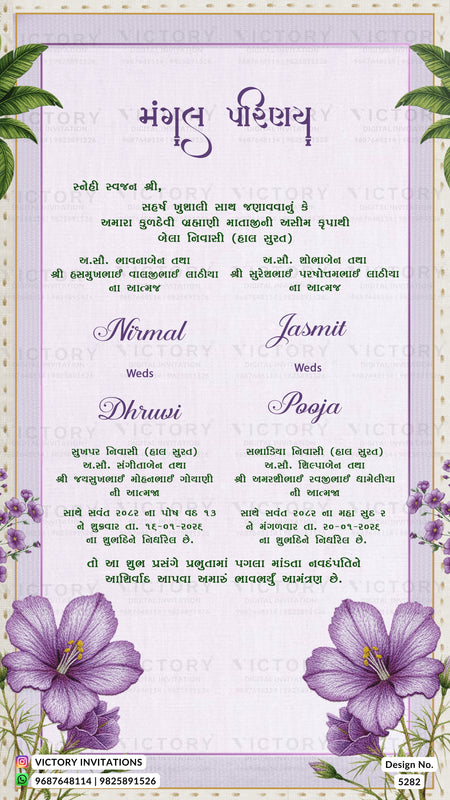 મંગલ પરિણય
સ્નેહી સ્વજન શ્રી,
સહર્ષ ખુશાલી સાથ જણાવવાનું કે
અમારા કુળદેવી બ્રહ્માણી માતાજીની અસીમ કૃપાથી
બેલા નિવાસી (હાલ સુરત)
અ.સૌ. ભાવનાબેન તથા
શ્રી હસમુખભાઈ વાલજીભાઈ લાઠીયા
ના આત્મજ
અ.સૌ. શોભાબેન તથા
શ્રી સુરેશભાઈ પરષોત્તમભાઈ લાઠીયા
ના આત્મજ
Nirmal
Weds
Dhruvi
Jasmit
Weds
Pooja
સુખપર નિવાસી (હાલ સુરત)
અ.સૌ. સંગીતાબેન તથા
શ્રી જયસુખભાઈ મોહનભાઈ ગોયાણી
ની આત્મજા
સાથે સવંત ૨૦૮૨ ના પોષ વદ ૧૩
ને શુક્રવાર તા. ૧૬-૦૧-૨૦૨૬
ના શુભદિને નિર્ધારેલ છે.
સભાડિયા નિવાસી (હાલ સુરત)
અ.સૌ. શિલ્પાબેન તથા
શ્રી અમરશીભાઈ રવજીભાઈ ધામેલીયા
ની આત્મજા
સાથે સવંત ૨૦૮૨ ના મહા સુદ ૨
ને મંગળવાર તા. ૨૦-૦૧-૨૦૨૬
ના શુભદિને નિર્ધારેલ છે.
તો આ શુભ પ્રસંગે પ્રભુતામાં પગલા માંડતા નવદંપતિને
આશિર્વાદ આપવા અમારું ભાવભર્યું આમંત્રણ છે.
VICTORY INVITATIONS
9687648114 | 9825891526
Design No.
5282